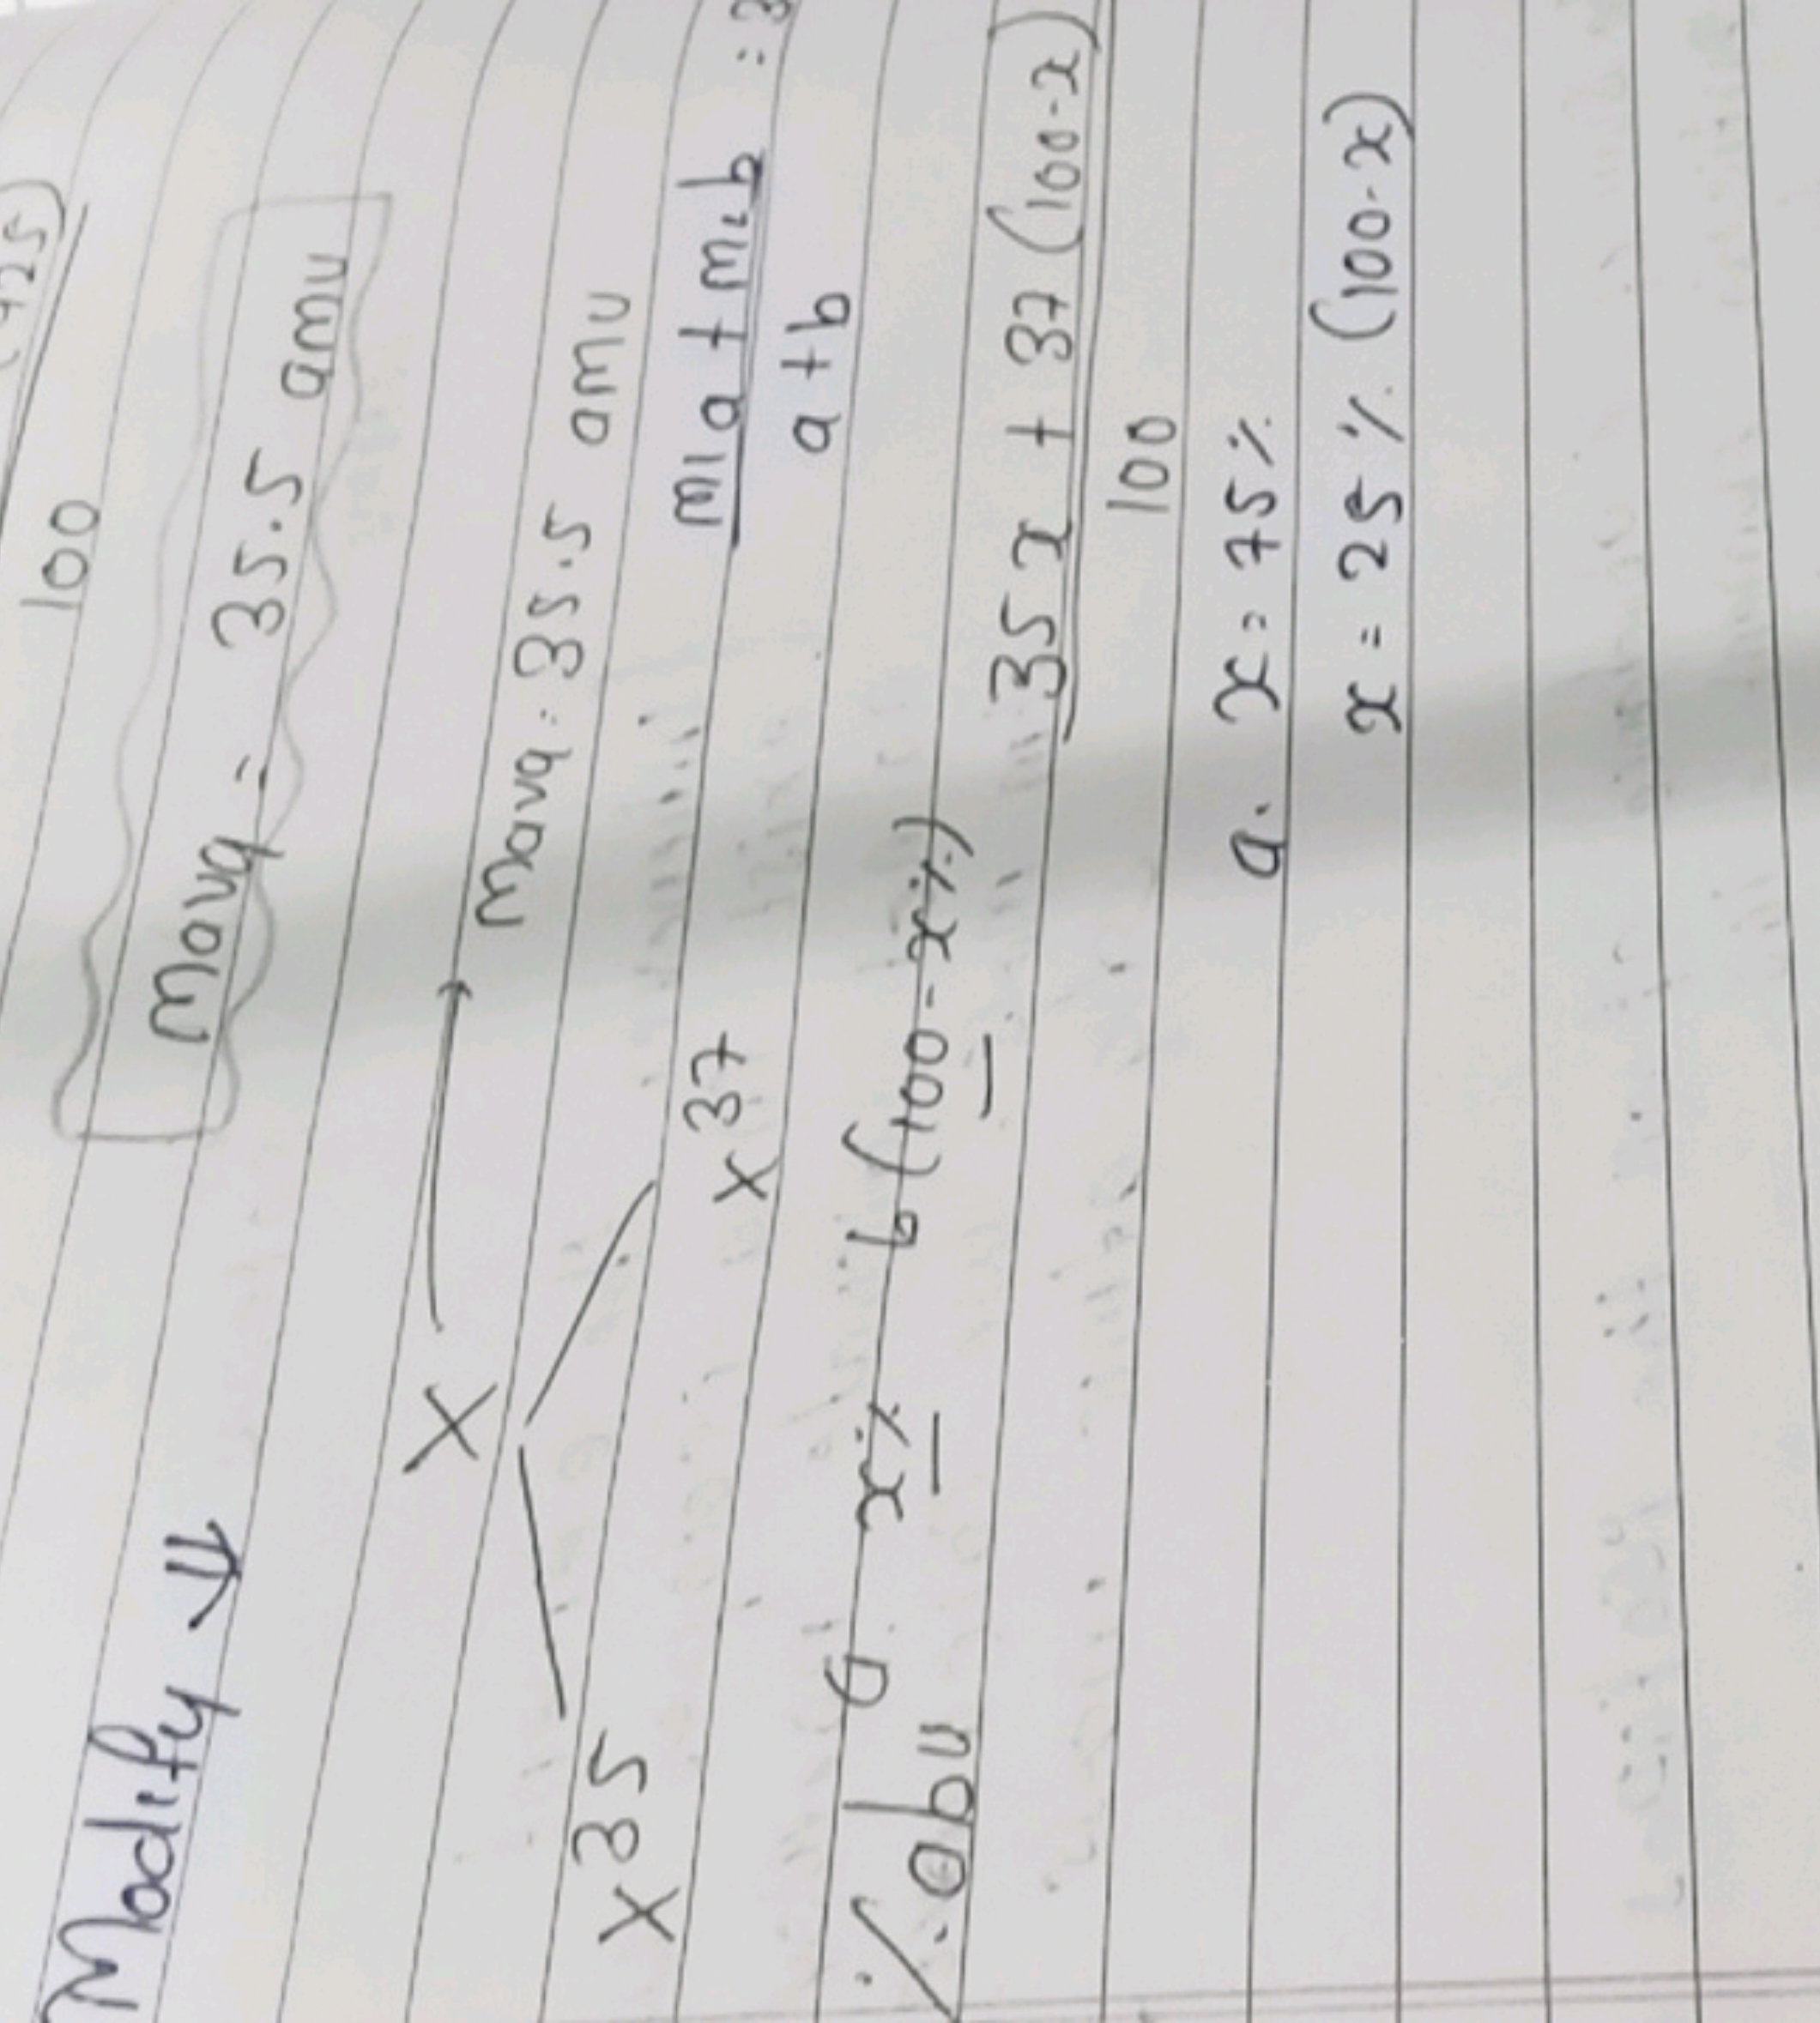 100
Mavg = 35.5 amu
Modify ⇓
X → Mavg = 35.5 amu
X 35 X 37 m1a + m2b
a + b
% abu a x% b (100 - x%)
35x + 37 (100-x)
100
a. x = 75%
x = 25% (100-x)